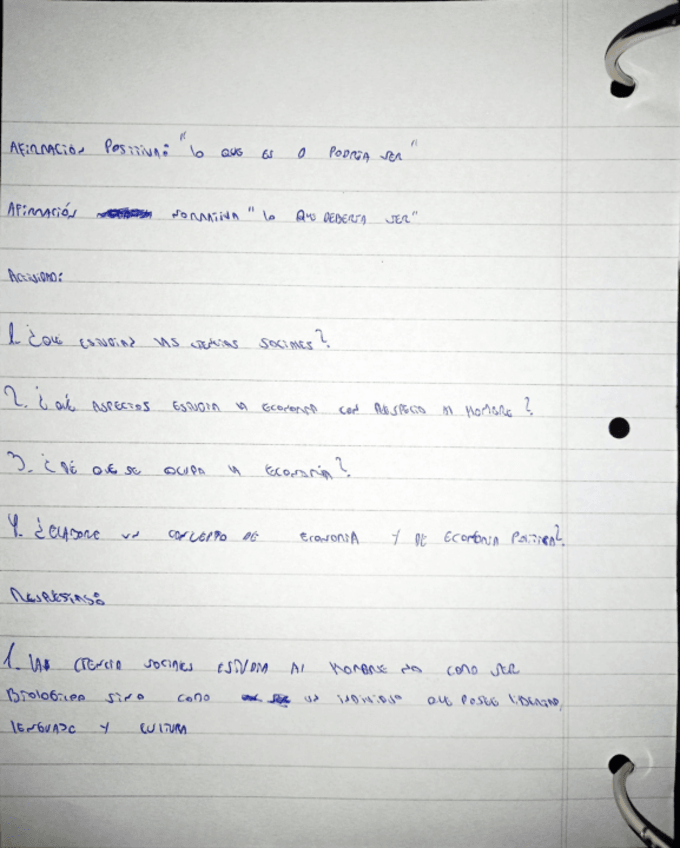 AFIRMACIÓN POSITIVA: "LO QUE ES O PODRÍA SER"
AFIRMACIÓN NORMATIVA "LO QUE DEBERÍA SER"
ACTIVIDAD:
1. ¿QUÉ ESTUDIAN LAS CIENCIAS SOCIALES?
2. ¿QUÉ ASPECTOS ESTUDIA LA ECONOMÍA CON RESPECTO AL HOMBRE?
3. ¿DE QUE SE OCUPA LA ECONOMÍA?
4. ¿ELABORE UN CONCEPTO DE ECONOMÍA Y DE ECONOMÍA POLÍTICA?
RESPUESTAS:
1. LAS CIENCIA SOCIALES ESTUDIA AL HOMBRE NO COMO SER
BIOLOGICO SINO COMO UN INDIVIDUO QUE POSEE LIBERTAD,
LENGUAJE Y CULTURA